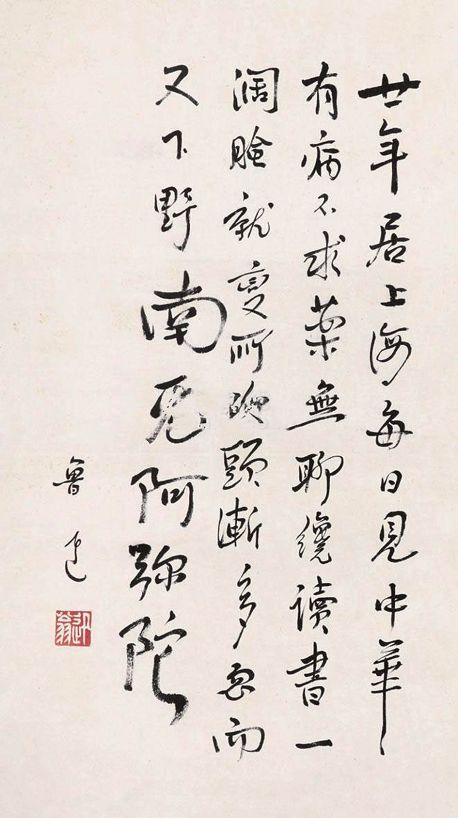 廿年居上海每日見中華
有病不求藥無聊纔讀書一
濶臉就變所砍頭漸多忽而
又下野南无阿弥陀
魯迅
迅翁